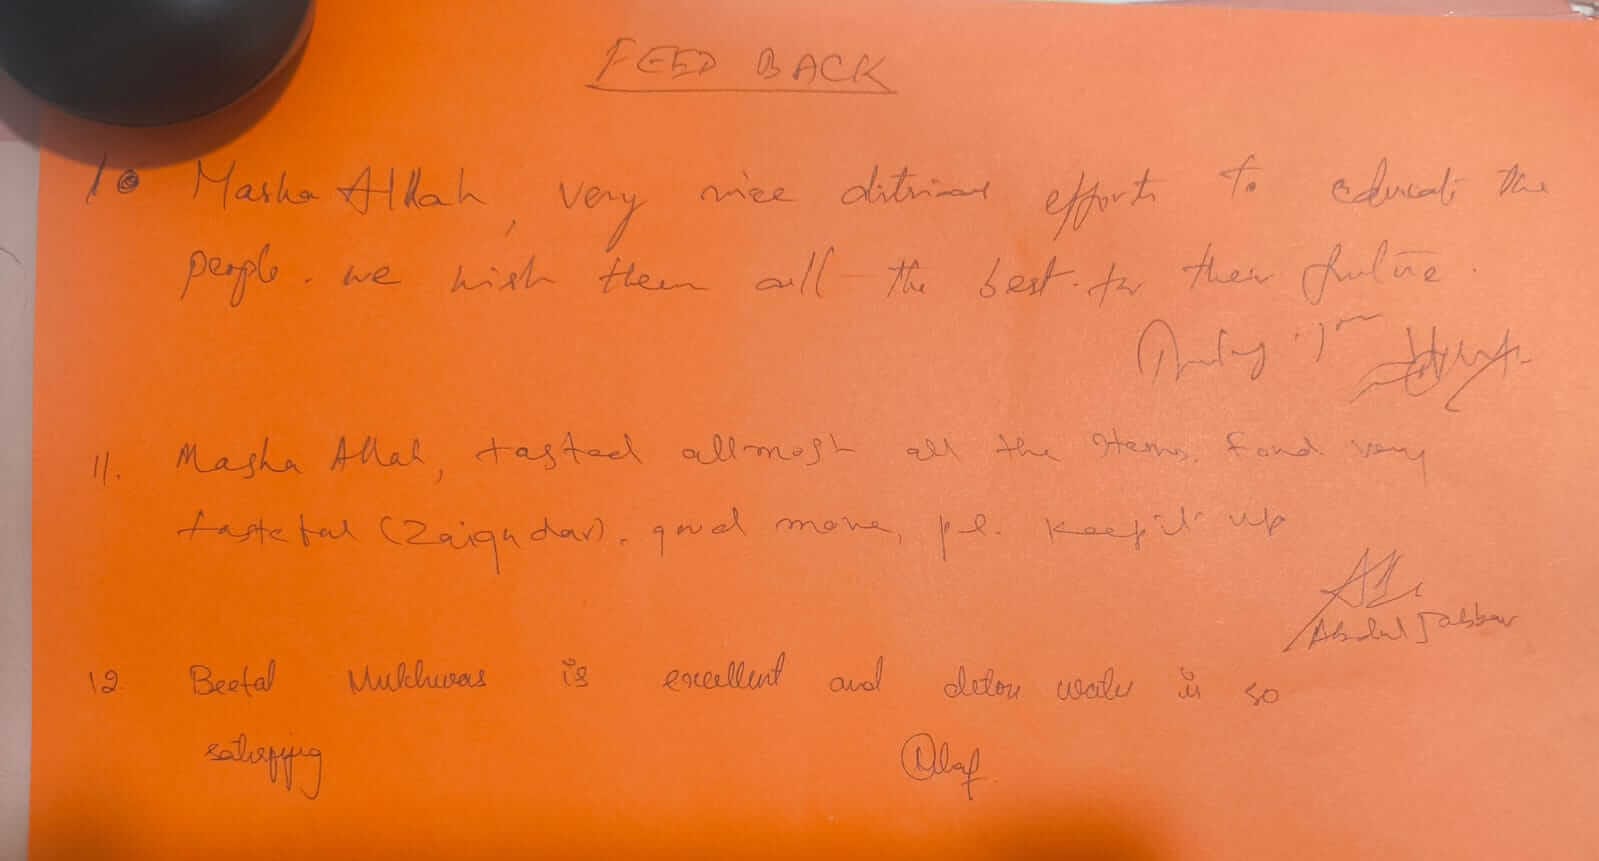 FEED BACK
10 Masha Allah, very nice efforts to educate the
people. we wish them all the best for their future.
11. Masha Allah, tasted allmost all the Items. Found very
tasteful (Zaiqudar). good move, pl. keep it up
Abdul Jabbar
12 Beetal Mukhwas is excellent and detox water is so
satisfying